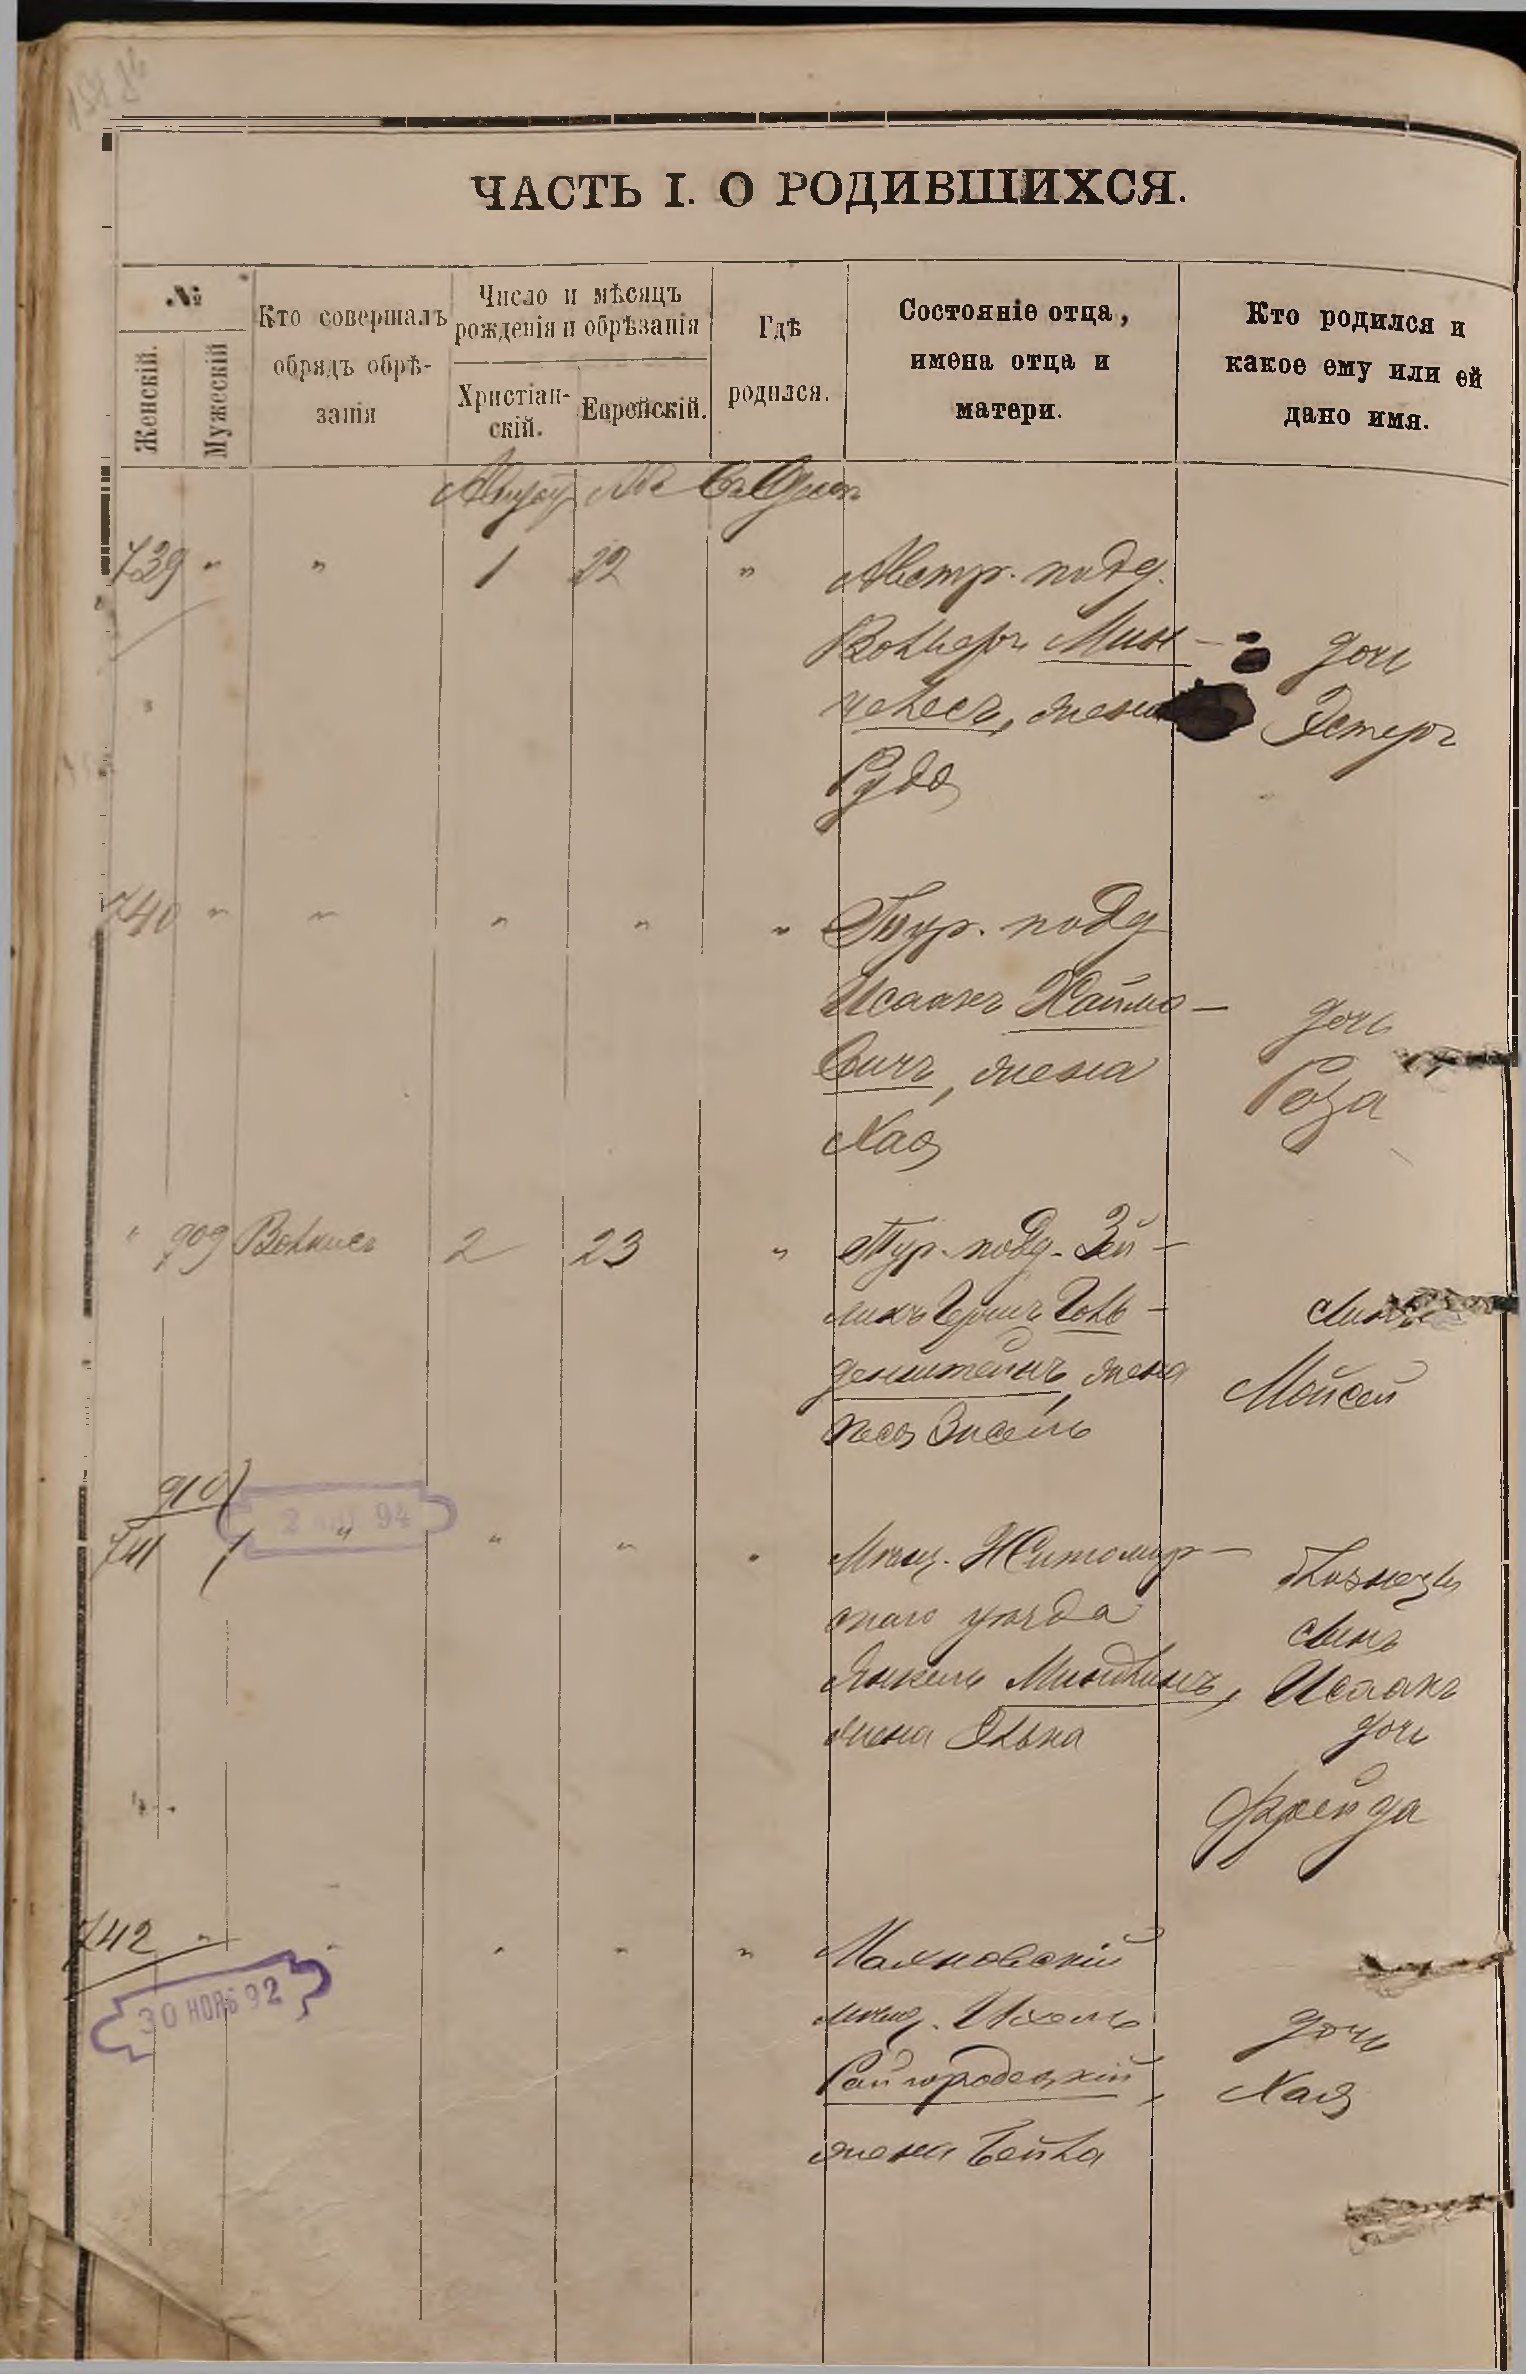 ЧАСТЬ I. О РОДИВШИХСЯ.
№
Женскій.
Мужескій
Кто совершалъ
обрядъ обрѣ-
занія
Число и мѣсяцъ
рожденія и обрѣзанія
Христіан-
скій.
Еврейскій.
Гдѣ
родился.
Состояніе отца,
имена отца и
матери.
Кто родился и
какое ему или ей
дано имя.
Августъ Въ Одессѣ
739 " " 1 22 " Австр. подд.
Вольфъ Мин-
целесъ, жена
дочь
Эстеръ
740 " " " " " Тур. подд
Исаакъ Хаймо-
вичъ, жена
Хая
дочь
Роза
" 909 2 23 " Тур. подд. Зей-
ликъ Гершъ Голь-
денштейнъ, жена
Песя
сынъ
Мойсей
910
741 " " " " Мѣщ. Житомир-
скаго уѣзда
Янкель
жена Элька
близнецы
сынъ
Исаакъ
дочь
Фрейда
2 94
742 " " " " " Махновскій
мѣщ. Ихель
Райгородецкій,
жена Бейла
дочь
Хая
30 НОЯБ 92